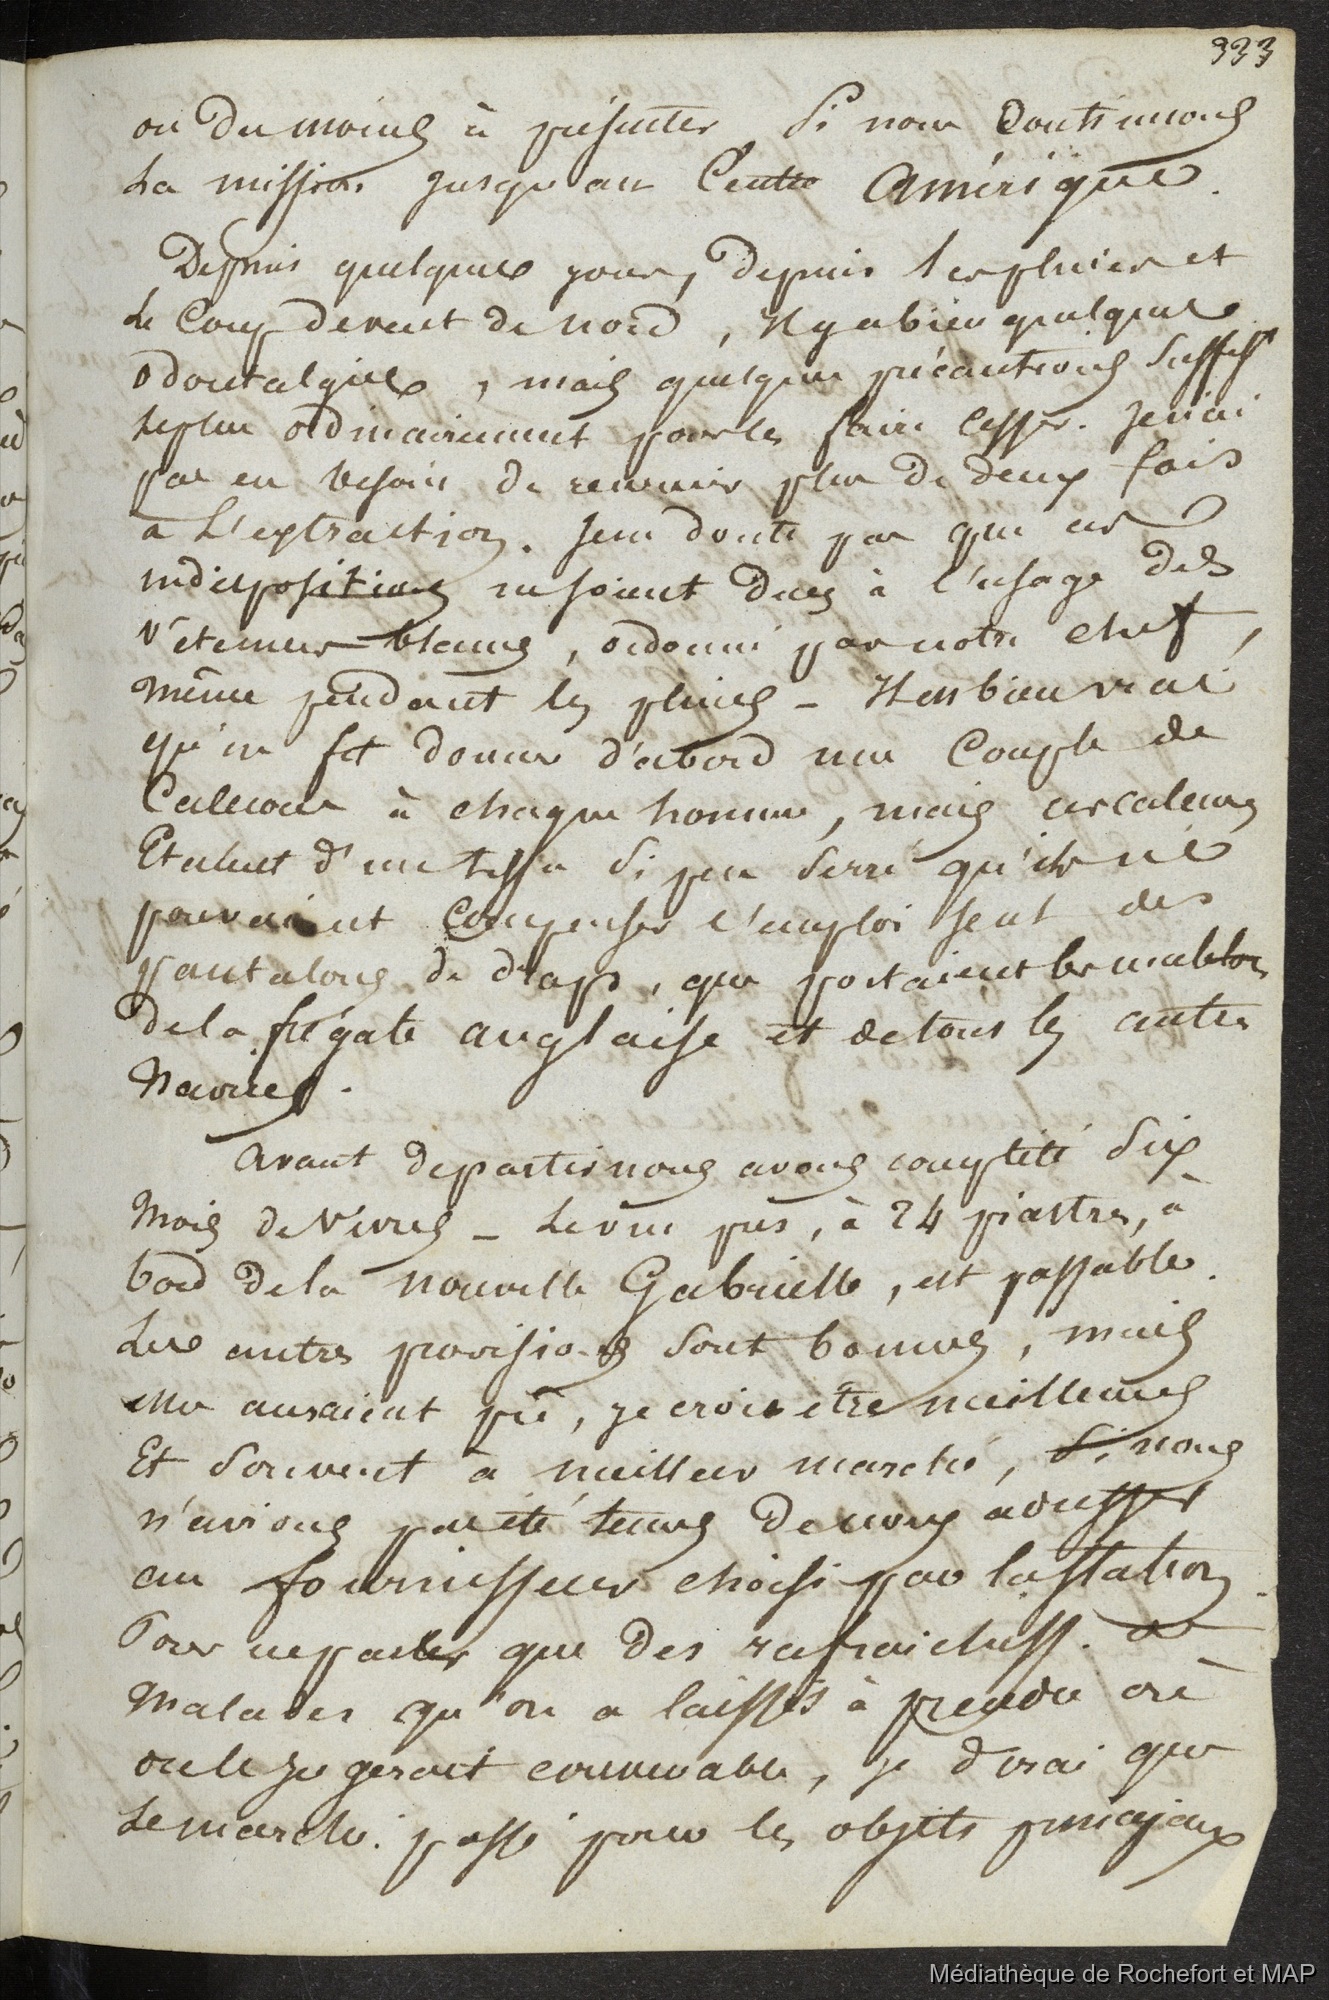 333
ou du moins à présenter si nous continuons
La mission jusqu'au Centre Amérique.
Depuis quelques jours, depuis les pluies et
le coup de vent de nord, il y a bien quelques
odontalgies, mais quelques précautions suffist
le plus ordinairement pour les faire cesser. Je n'ai
pas eu besoin de revenir plus de deux fois
a L'extraction. Je ne doute pas que ces
indispositions ne soient dues à l'usage des
vêtemens blancs, ordonné par notre chef,
même pendant les pluies _ Il est bien vrai
qu'on fit donner d'abord une couple de
caleçons à chaque homme, mais ces caleçons
Etaient d'un tissu si peu serré qu'ils ne
pouvaient compenser l'emploi seul des
pantalons de drap, que portaient les matelots
de la frégate anglaise et de tous les autres
Navires.
avant de partir nous avons complété six
Mois de Vivres _ Le vin pris, à 24 piastres, à
bord de la nouvelle Gabrielle, est passable.
Les autres provisions sont bonnes, mais
elles auraient pu, je crois être meilleures
Et souvent à meilleur marché, si nous
n'avions pas été tenus de nous adresser
au fournisseur choisi par la station
Pour ne parler que des rafraichiss. de
Malades qu'on a laissés à prendre où
on le jugerait convenable, je dirai que
Le marché passé pour les objets principaux
Médiathèque de Rochefort et MAP